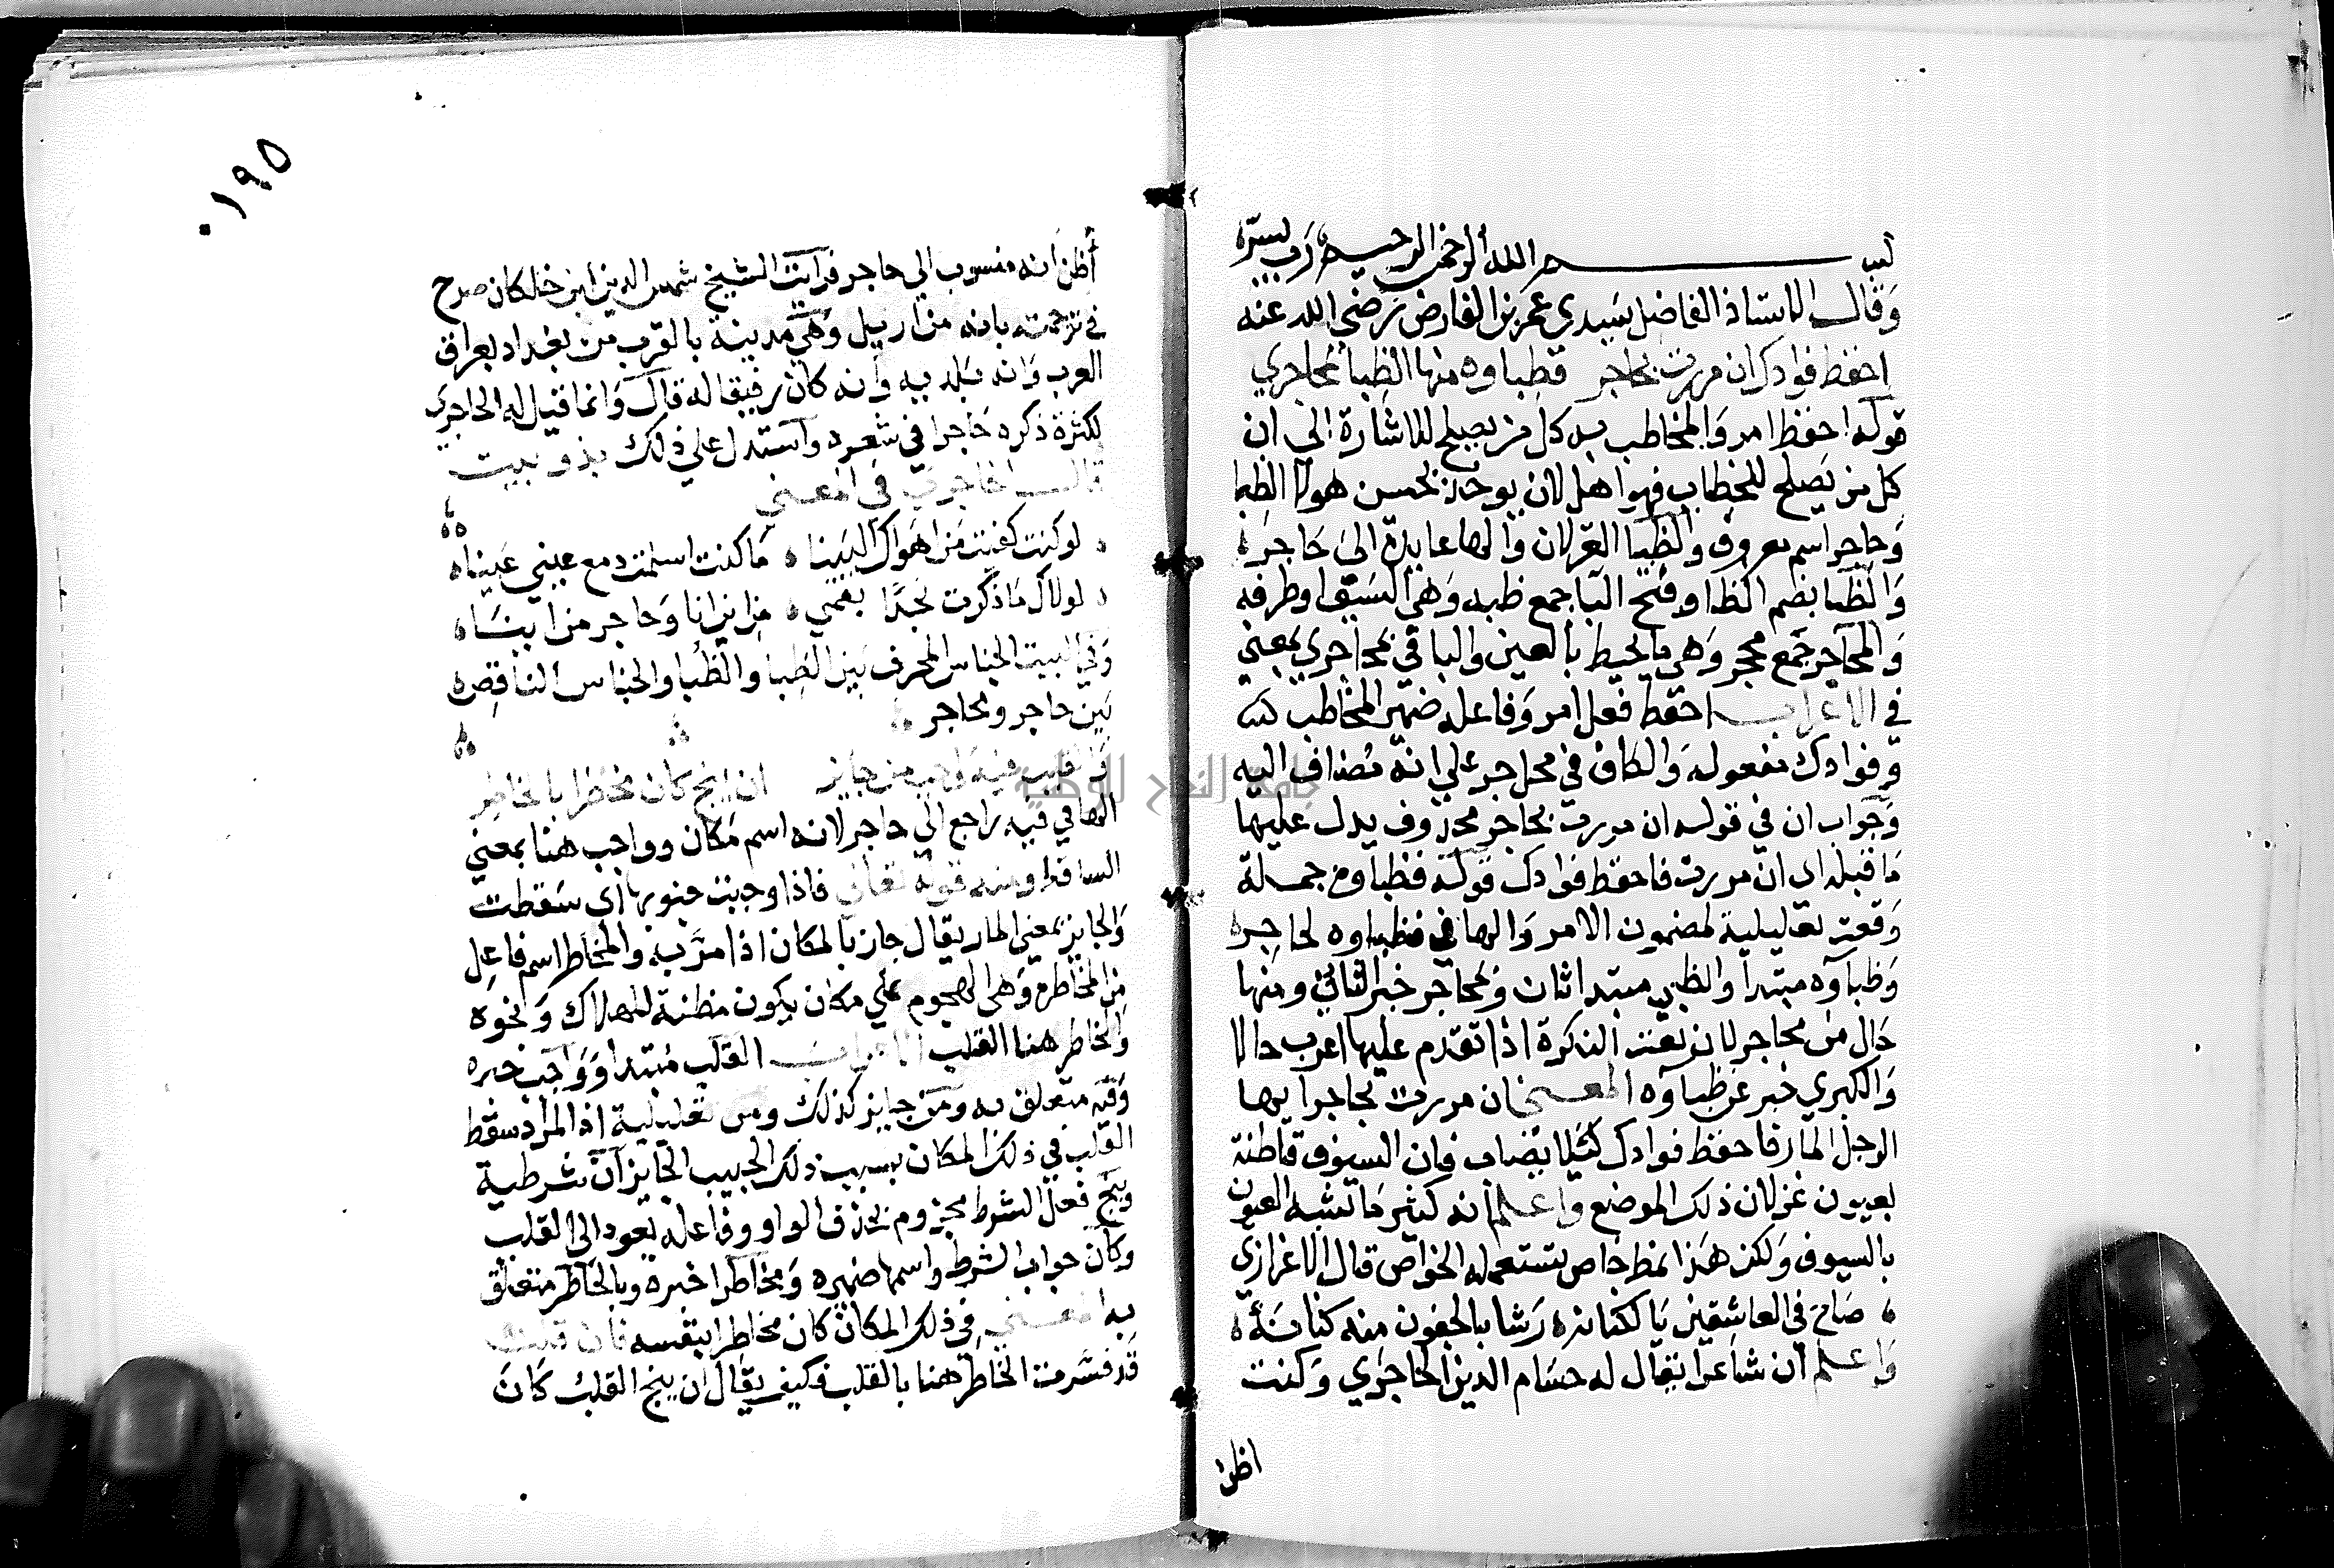 بسم الله الرحمن الرحيم رب يسره
وقال الاستاذ الفاضل سيدي عمر بن الفارض رضي الله عنه
احفظ فوادك ان مررت بحاجر فظباوه منها الظبا بمحاجري
قوله احفظ امر والمخاطب به كل من يصلح للاشارة الي ان
كل من يصلح للخطاب فهو اهل لان يوخذ بحسن هولا الظبا
وحاجر اسم معروف والظبا الغزلان والها عايدة الى حاجر
والظبا بضم الظا وفتح البا جمع ظبه وهي السيف او طرفه
والمحاجر جمع محجر وهي ما يحيط بالعين والبا في بمحاجري بمعني
في الاعراب احفظ فعل امر وفاعله ضمير المخاطب
وفوادك مفعوله والكاف في محل جر علي انه مضاف اليه
وجواب ان في قوله ان مررت بحاجر محذوف يدل عليها
ما قبله اي ان مررت فاحفظ فوادك قوله فظباوه جملة
وقعت تعليلية لمضمون الامر والها في فظباوه لحاجره
وظباوه مبتدا والظبي مبتدا ثان وبمحاجر خبر الثاني ومنها
حال من محاجر لان نعت النكرة اذا تقدم عليها اعرب حالا
والكبري خبر عن ظباوه المعنى ان مررت بحاجر ايها
الرجل المار فاحفظ فوادك كيلا يصاب فان السيوف قاطنة
بعيون غزلان ذلك الموضع واعلم انه كثير ما تشبه العيون
بالسيوف ولكن هذا نمط خاص تستعمله الخواص قال الاعزازي
صاح في العاشقين يا لكنانه رشا بالجفون منه كنانة
واعلم ان شاعرا يقال له حسام الدين الحاجري وكنت
اظن
٠١٩٥
أظن انه منسوب الي حاجر فرايت الشيخ شمس الدين ابن خلكان صرح
في ترجمته بانه من اربيل وهي مدينة بالقرب من بغداد بعراق
العرب وانه بلديه وانه كان رفيقا له قال وانما قيل له الحاجري
لكثرة ذكره حاجرا في شعره واستدل علي ذلك بذو بيت
قال الحاجري في المعني
لو كنت كفيت من اهواك البينا ما كنت اسلت دمع عيني عينا
لولاك ما ذكرت نجدا بفمي من اين انا وحاجر من اينا
وفي البيت الجناس المحرف بين الظبا والظبا والجناس الناقص
بين حاجر ومحاجر
فالقلب فيه واجب من جايز ان ينج كان مخاطرا بالخاطر
الها في فيه راجع الي حاجر لانه اسم مكان وواجب هنا بمعني
الساقط ومنه قوله تعالى فاذا وجبت جنوبها اي سقطت
والجايز بمعني المار يقال جاز بالمكان اذا مر به والمخاطر اسم فاعل
من المخاطره وهي الهجوم علي مكان يكون مظنة للهلاك ونحوه
والخاطر هنا القلب الاعراب القلب مبتدا وواجب خبره
وفيه متعلق به ومن جايز كذلك ومن تعليلية اذ المراد سقط
القلب في ذلك المكان بسبب ذلك الحبيب الجايز ان شرطية
وينج فعل الشرط مجزوم بحذف الواو وفاعله يعود الي القلب
وكان جواب الشرط واسمها ضميره ومخاطرا خبره وبالخاطر متعلق
به المعني في ذلك المكان كان مخاطرا بنفسه فان قلت
قد فسرت الخاطر هنا بالقلب فكيف يقال ان ينج القلب كان
جامعة النجاح الوطنية